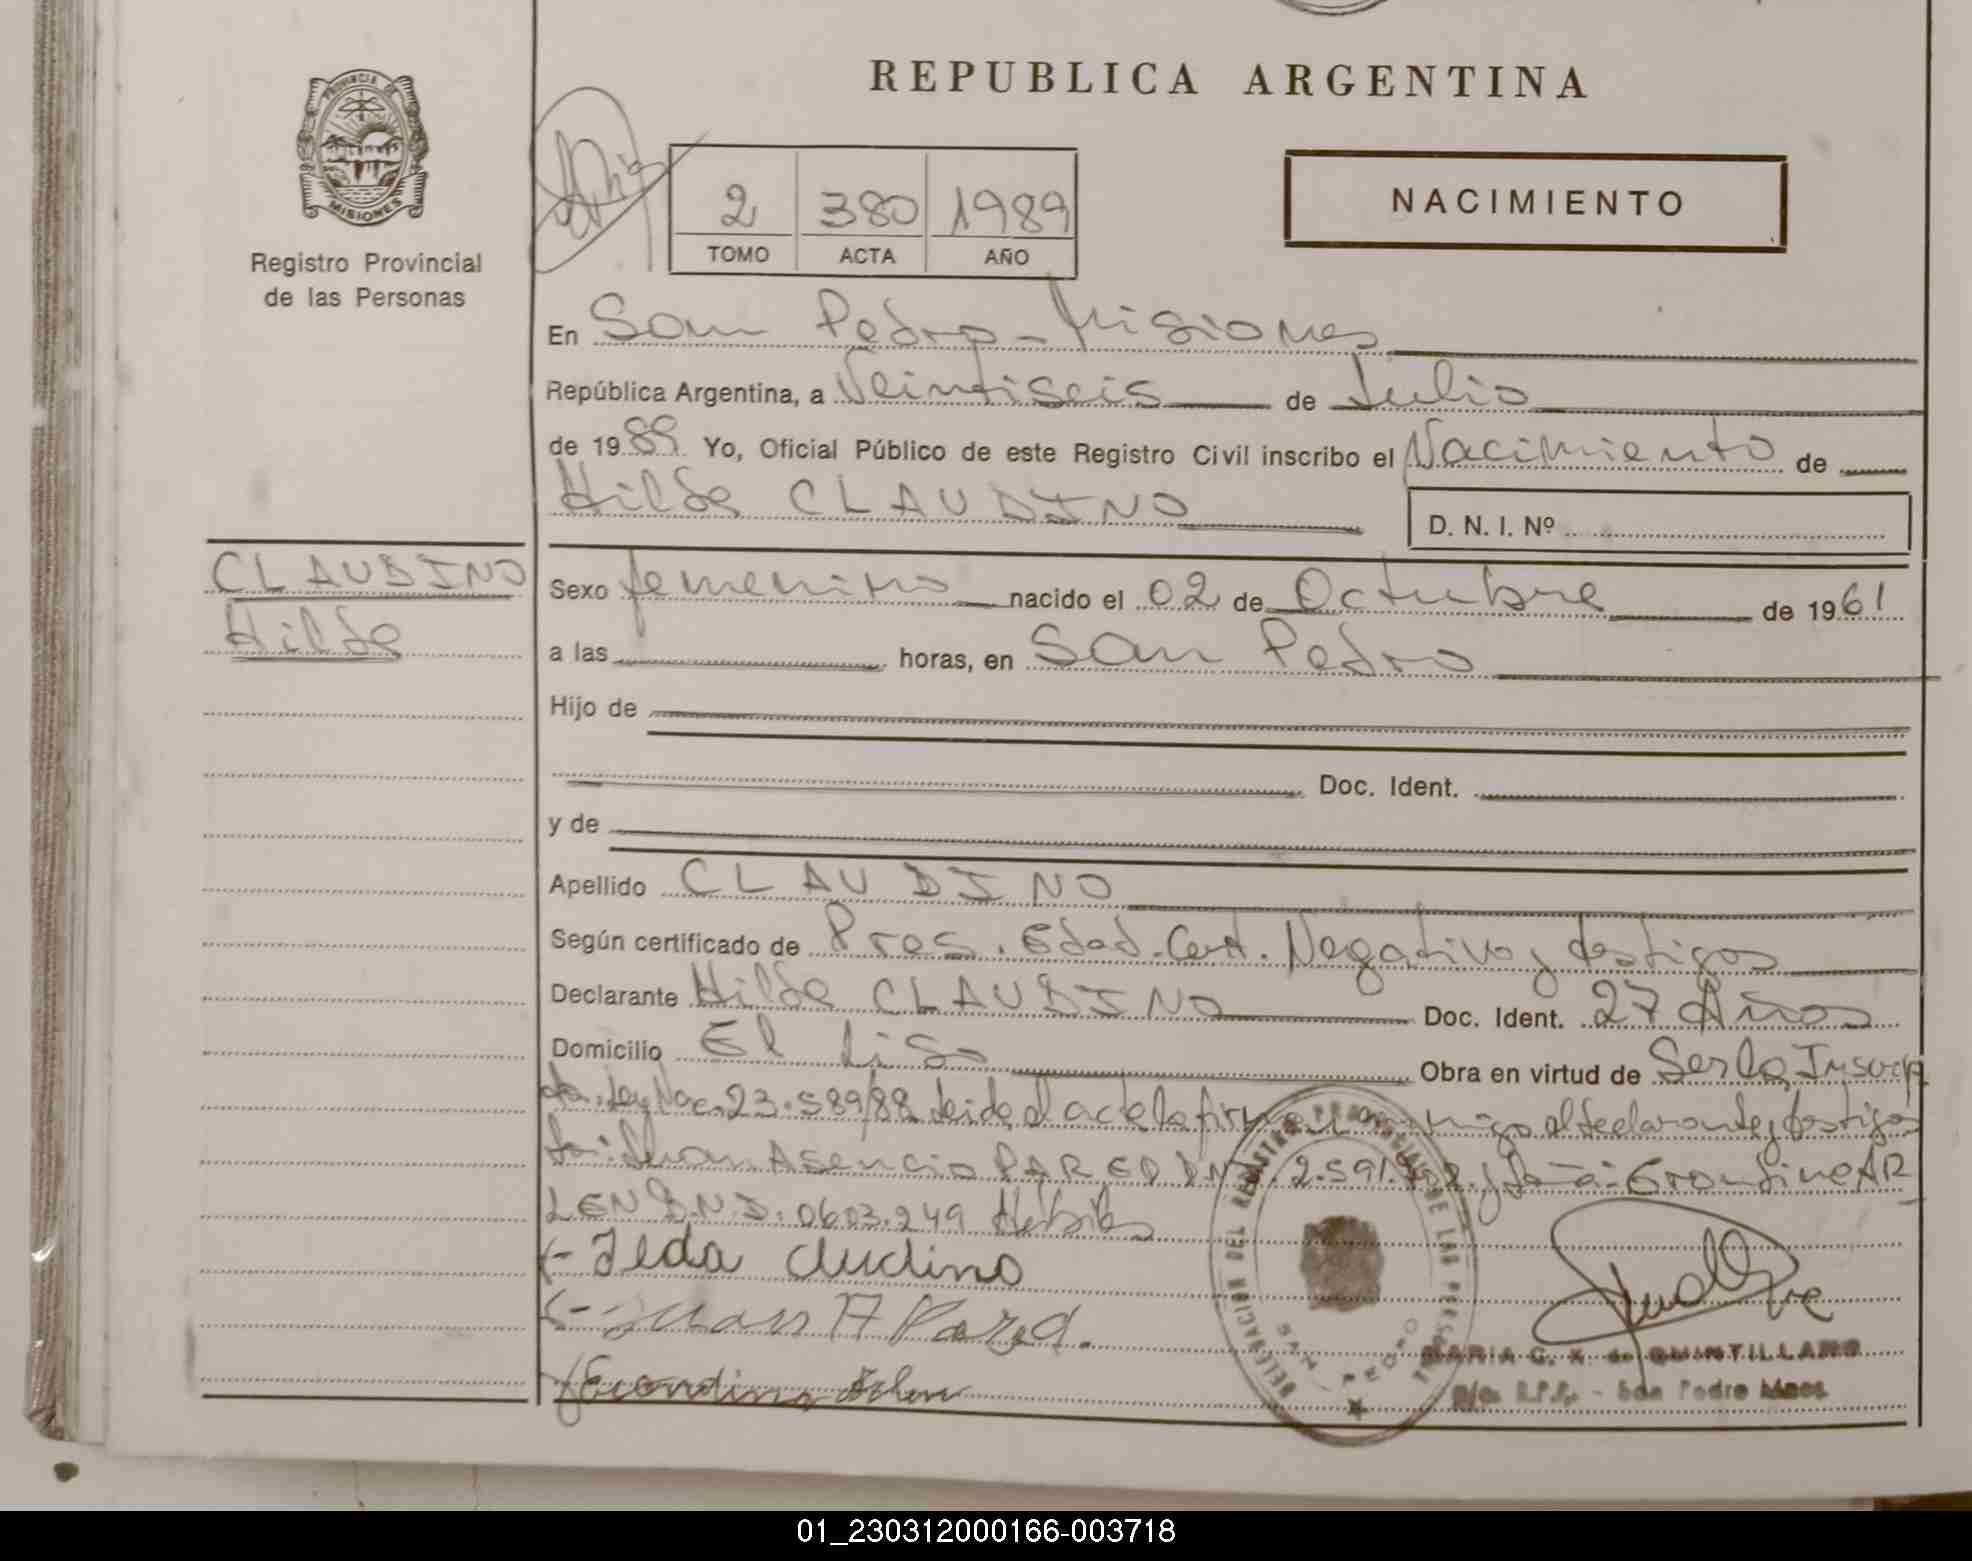 REPUBLICA ARGENTINA
PROVINCIA DE
MISIONES
Registro Provincial
de las Personas
2 380 1989
TOMO ACTA AÑO
NACIMIENTO
En San Pedro - Misiones
República Argentina, a Veintiseis de Julio
de 1989 Yo, Oficial Público de este Registro Civil inscribo el Nacimiento de
Hilda CLAUDINO
D. N. I. Nº
CLAUDINO
Hilda
Sexo femenino nacido el 02 de Octubre de 1961
a las horas, en San Pedro
Hijo de
Doc. Ident.
y de
Apellido CLAUDINO
Según certificado de Pres. Edad. Cert. Negativo y testigos
Declarante Hilda CLAUDINO Doc. Ident. 27 Años
Domicilio El Liso Obra en virtud de Ser la Inscrip
ta. Ley Nac. 23.589/88 leida el acta la firman conmigo el declarante y testigos
Juan Asencio PARED DNI. 2.591. y
LEN D.N.I. 0603.249 Hábiles
- Ilda cludino
- Juan A Pared.
DELEGACION DEL REGISTRO PROVINCIAL DE LAS PERSONAS
SAN PEDRO
MARIA G. K. de QUINTILLANO
R.P.P. - San Pedro Mnes.
01_230312000166-003718